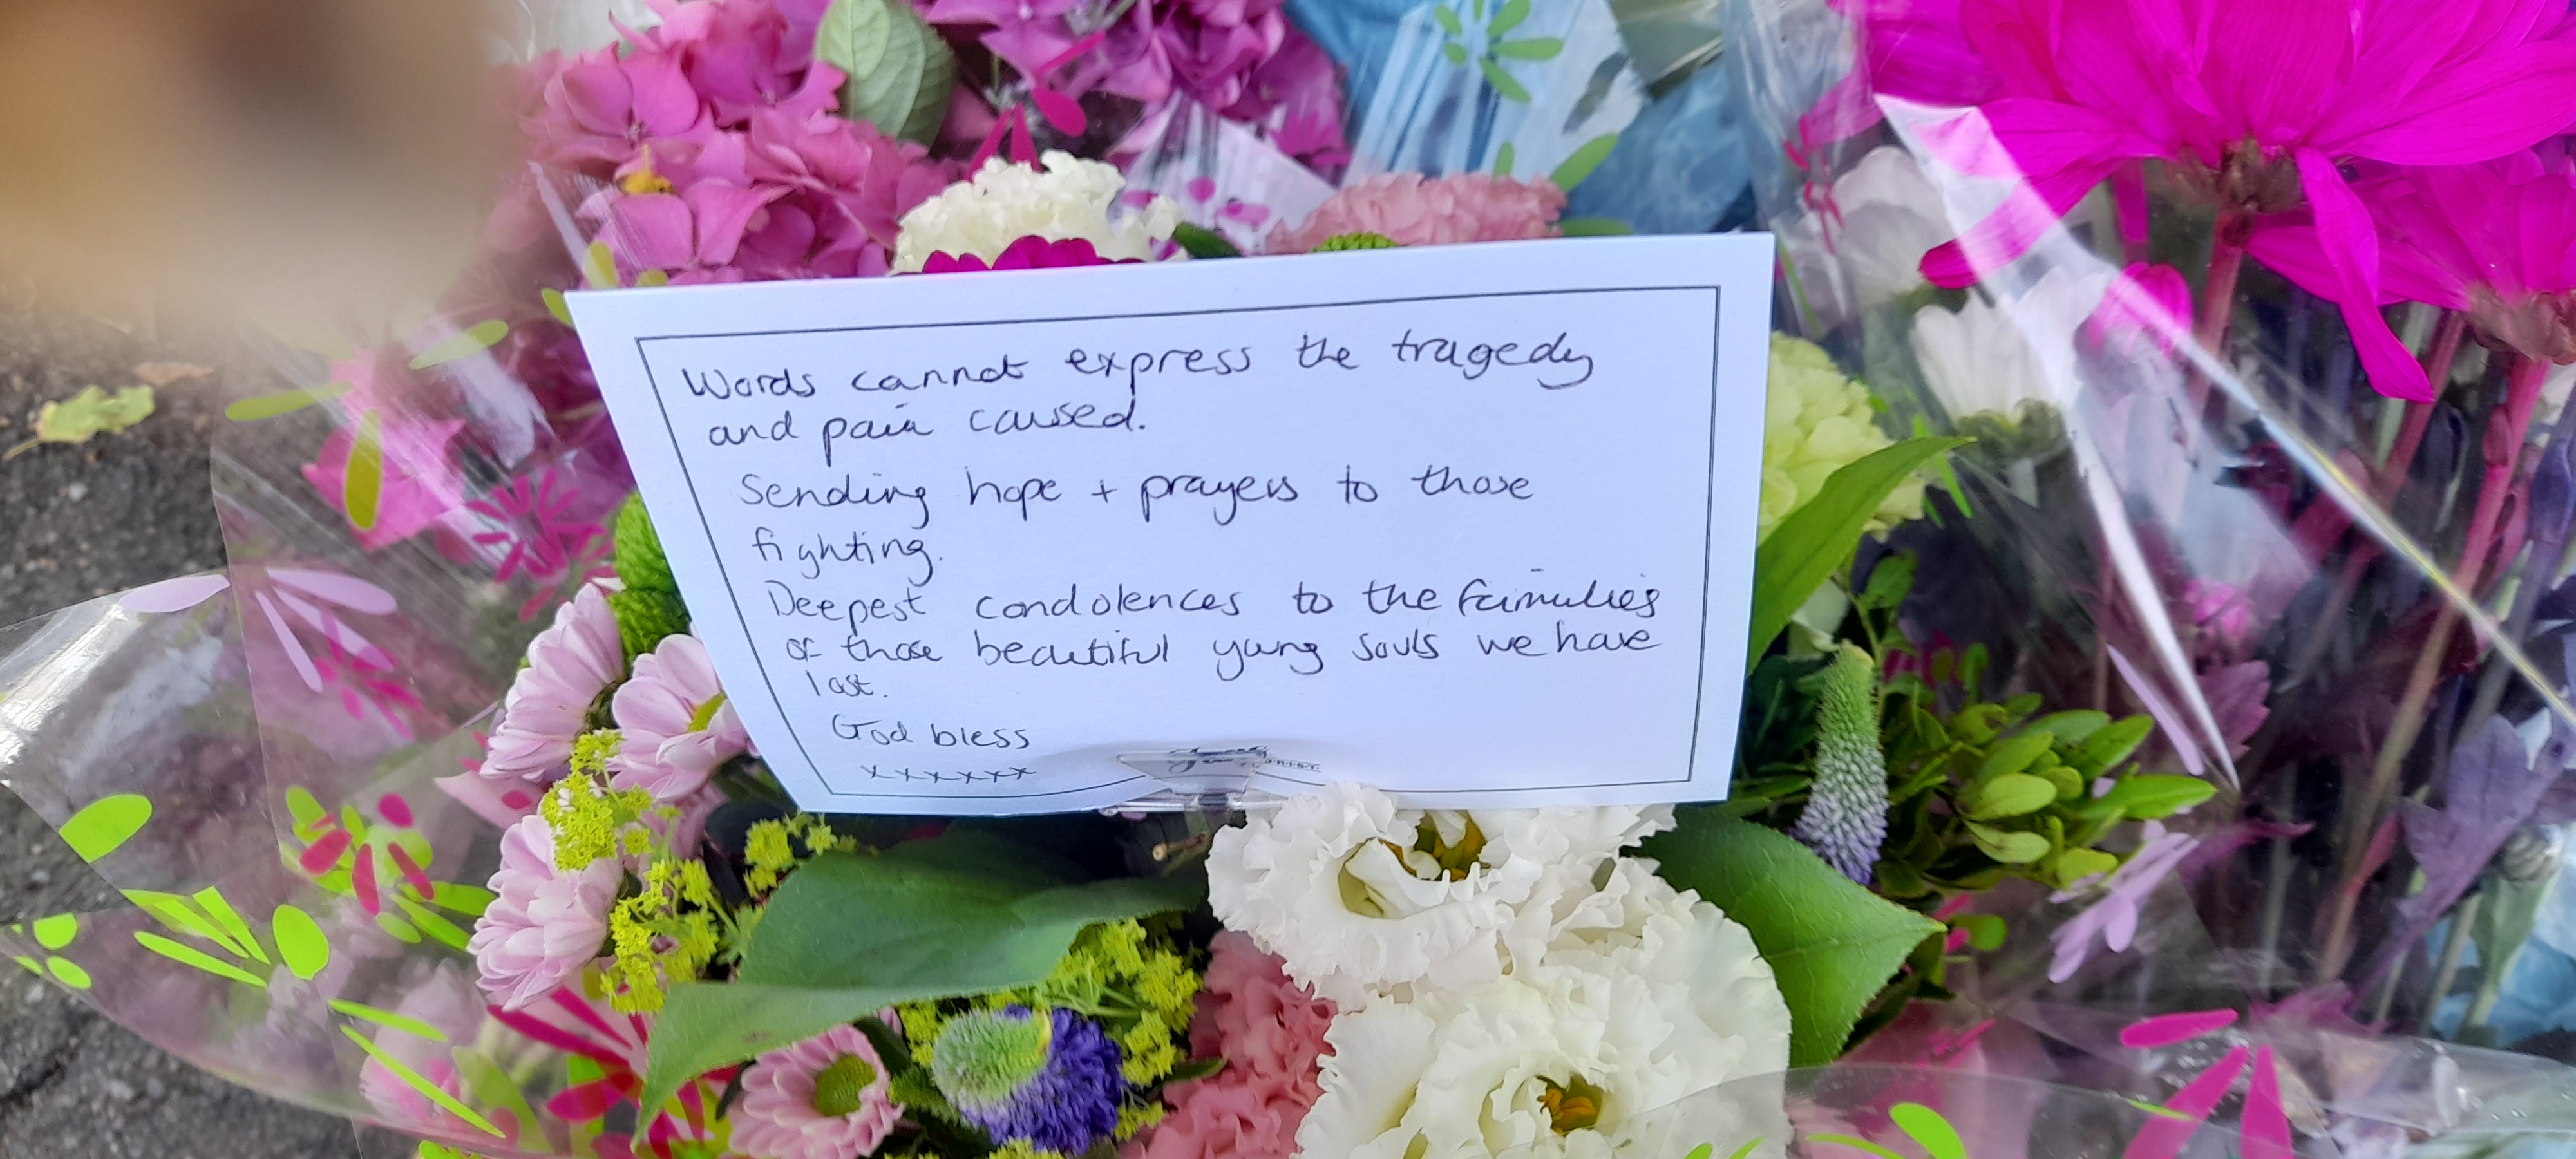 Words cannot express the tragedy
and pain caused.
Sending hope + prayers to those
fighting.
Deepest condolences to the families
of those beautiful young souls we have
lost.
God bless
xxxxxx